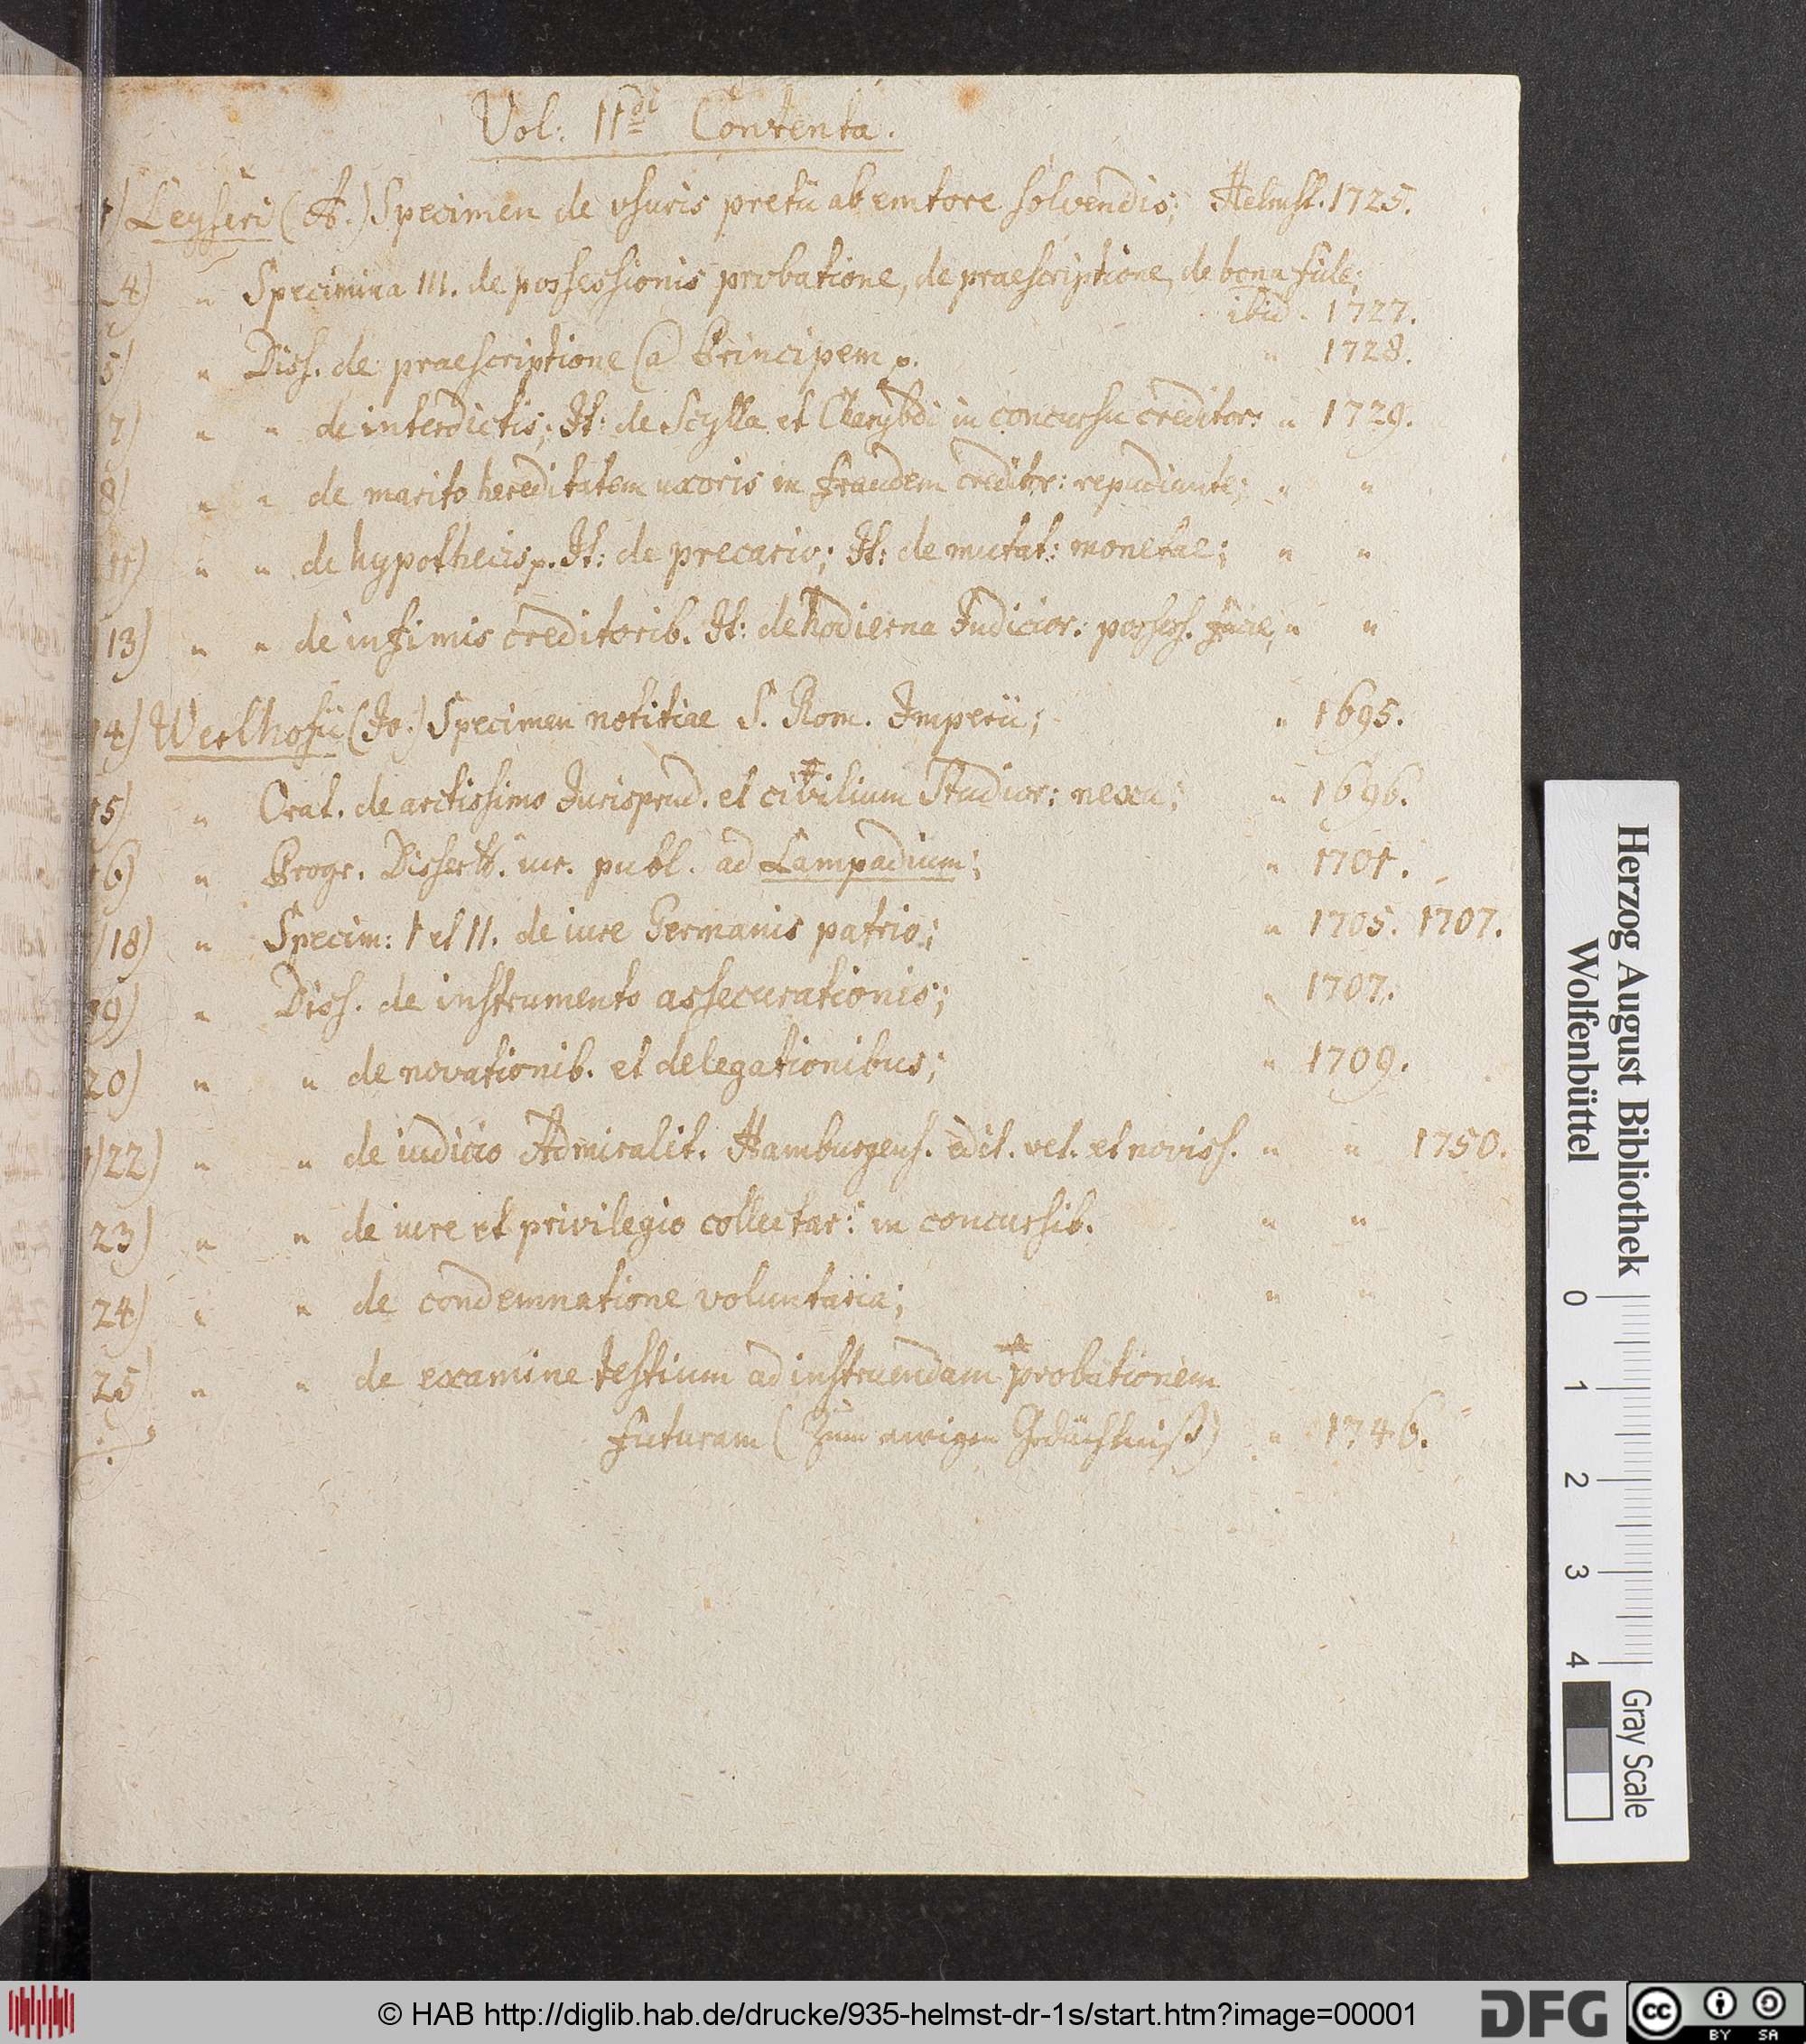 Vol: IIdi Contenta.
1) Leyseri (A.) Specimen de vsuris pretii ab emtore solvendis; Helmst. 1725.
4) " Specimina III. de possessionis probatione, de praescriptione, de bona fide;
ibid. 1727.
5) " Diss. de praescriptione Principem p. " 1728.
7) " " de interdictis; It: de Scylla et Charybdi in concursu creditor: " 1729.
8) " " de marito hereditatem uxoris in fraudem creditor: repudiante; " "
11) " " de hypothecis p. It: de precario; It: de mutat: monetae; " "
13) " " de infimis creditorib. It: de hodierna Iudicior: possess. facie, " "
14) Werlhofii (Io.) Specimen notitiae S. Rom. Imperii; " 1695.
15) " Orat. de arctissimo Iurisprud. et civilium Studior: nexu; " 1696.
16) " Progr. Dissertt. iur. publ. ad Lampadium; " 1701.
18) " Specim: I et II. de iure Germanis patrio; " 1705. 1707.
19) " Diss. de instrumento assecurationis; " 1707.
20) " " de novationib. et delegationibus; " 1709.
22) " " de iudicio Admiralit. Hamburgens. edit. vet. et noviss. " " 1750.
23) " " de iure et privilegio collectar: in concursib. " "
24) " " de condemnatione voluntaria; " "
25) " " de examine testium ad instruendam probationem
futuram (Zum ewigen Gedächtniß) " 1746.
Herzog August Bibliothek
Wolfenbüttel
0 1 2 3 4
Gray Scale
© HAB http://diglib.hab.de/drucke/935-helmst-dr-1s/start.htm?image=00001
DFG
cc BY SA